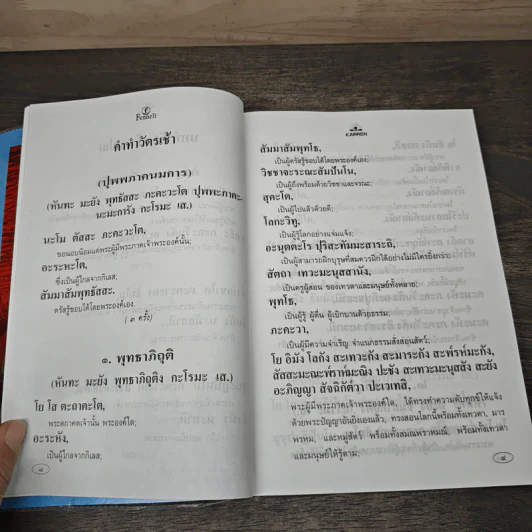 Fennell
คำทำวัตรเช้า
(ปุพพภาคนมการ)
(หันทะ มะยัง พุทธัสสะ ภะคะวะโต ปุพพะภาคะ-
นะมะการัง กะโรมะ เส.)
นะโม ตัสสะ ภะคะวะโต,
ขอนอบน้อมแด่พระผู้มีพระภาคเจ้าพระองค์นั้น;
อะระหะโต,
ซึ่งเป็นผู้ไกลจากกิเลส;
สัมมาสัมพุทธัสสะ.
ตรัสรู้ชอบได้โดยพระองค์เอง.
(๓ ครั้ง)
๑. พุทธาภิถุติ
(หันทะ มะยัง พุทธาภิถุติง กะโรมะ เส.)
โย โส ตะถาคะโต,
พระตถาคตเจ้านั้น พระองค์ใด;
อะระหัง,
เป็นผู้ไกลจากกิเลส;
KARREN
สัมมาสัมพุทโธ,
เป็นผู้ตรัสรู้ชอบได้โดยพระองค์เอง;
วิชชาจะระณะสัมปันโน,
เป็นผู้ถึงพร้อมด้วยวิชชาและจรณะ;
สุคะโต,
เป็นผู้ไปแล้วด้วยดี;
โลกะวิทู,
เป็นผู้รู้โลกอย่างแจ่มแจ้ง;
อะนุตตะโร ปุริสะทัมมะสาระถิ,
เป็นผู้สามารถฝึกบุรุษที่สมควรฝึกได้อย่างไม่มีใครยิ่งกว่า;
สัตถา เทวะมะนุสสานัง,
เป็นครูผู้สอน ของเทวดาและมนุษย์ทั้งหลาย;
พุทโธ,
เป็นผู้รู้ ผู้ตื่น ผู้เบิกบานด้วยธรรม;
ภะคะวา,
เป็นผู้มีความจำเริญ จำแนกธรรมสั่งสอนสัตว์;
โย อิมัง โลกัง สะเทวะกัง สะมาระกัง สะพ๎รห๎มะกัง,
สัสสะมะณะพ๎ราห๎มะณิง ปะชัง สะเทวะมะนุสสัง สะยัง
อะภิญญา สัจฉิกัต๎วา ปะเวเทสิ,
พระผู้มีพระภาคเจ้าพระองค์ใด, ได้ทรงทำความดับทุกข์ให้แจ้ง
ด้วยพระปัญญาอันยิ่งเองแล้ว, ทรงสอนโลกนี้พร้อมทั้งเทวดา, มาร
พรหม, และหมู่สัตว์ พร้อมทั้งสมณพราหมณ์, พร้อมทั้งเทวดา
และมนุษย์ให้รู้ตาม;